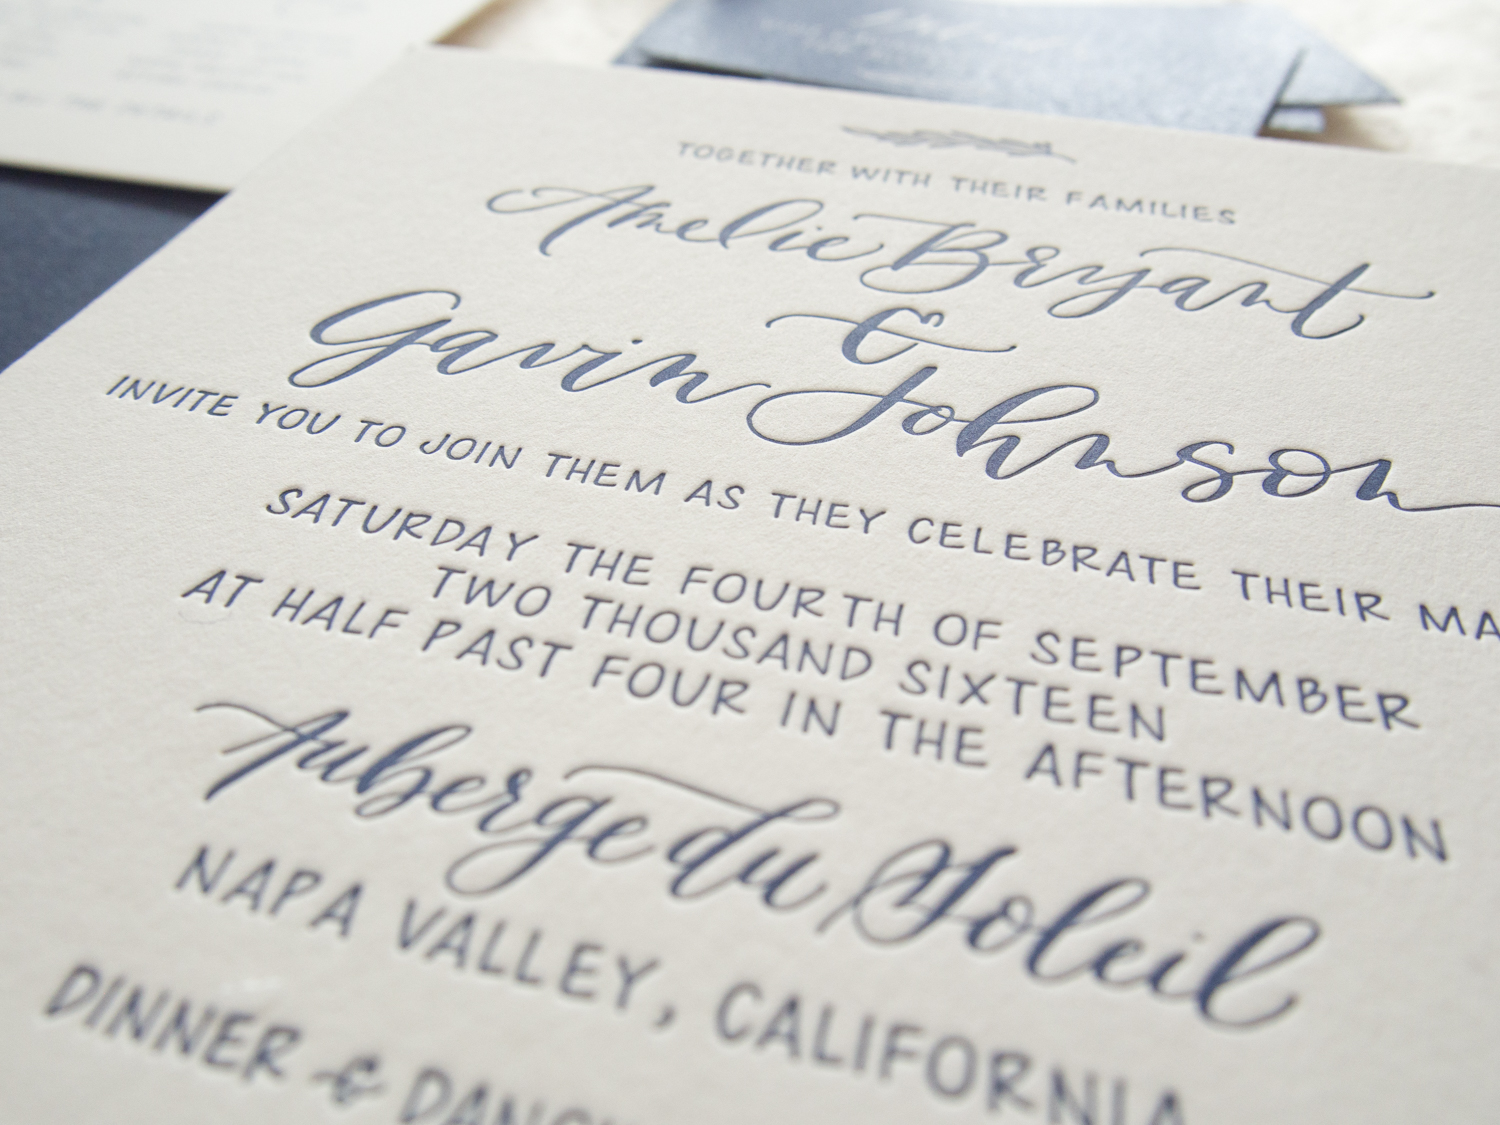 TOGETHER WITH THEIR FAMILIES
Amelie Bryant
&
Gavin Johnson
INVITE YOU TO JOIN THEM AS THEY CELEBRATE THEIR MA
SATURDAY THE FOURTH OF SEPTEMBER
TWO THOUSAND SIXTEEN
AT HALF PAST FOUR IN THE AFTERNOON
Auberge du Soleil
NAPA VALLEY, CALIFORNIA
DINNER & DANCI